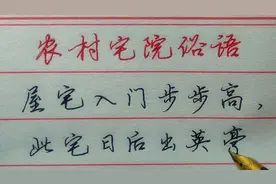 农村宅院俗语
屋宅入门步步高，
此宅日后出英豪